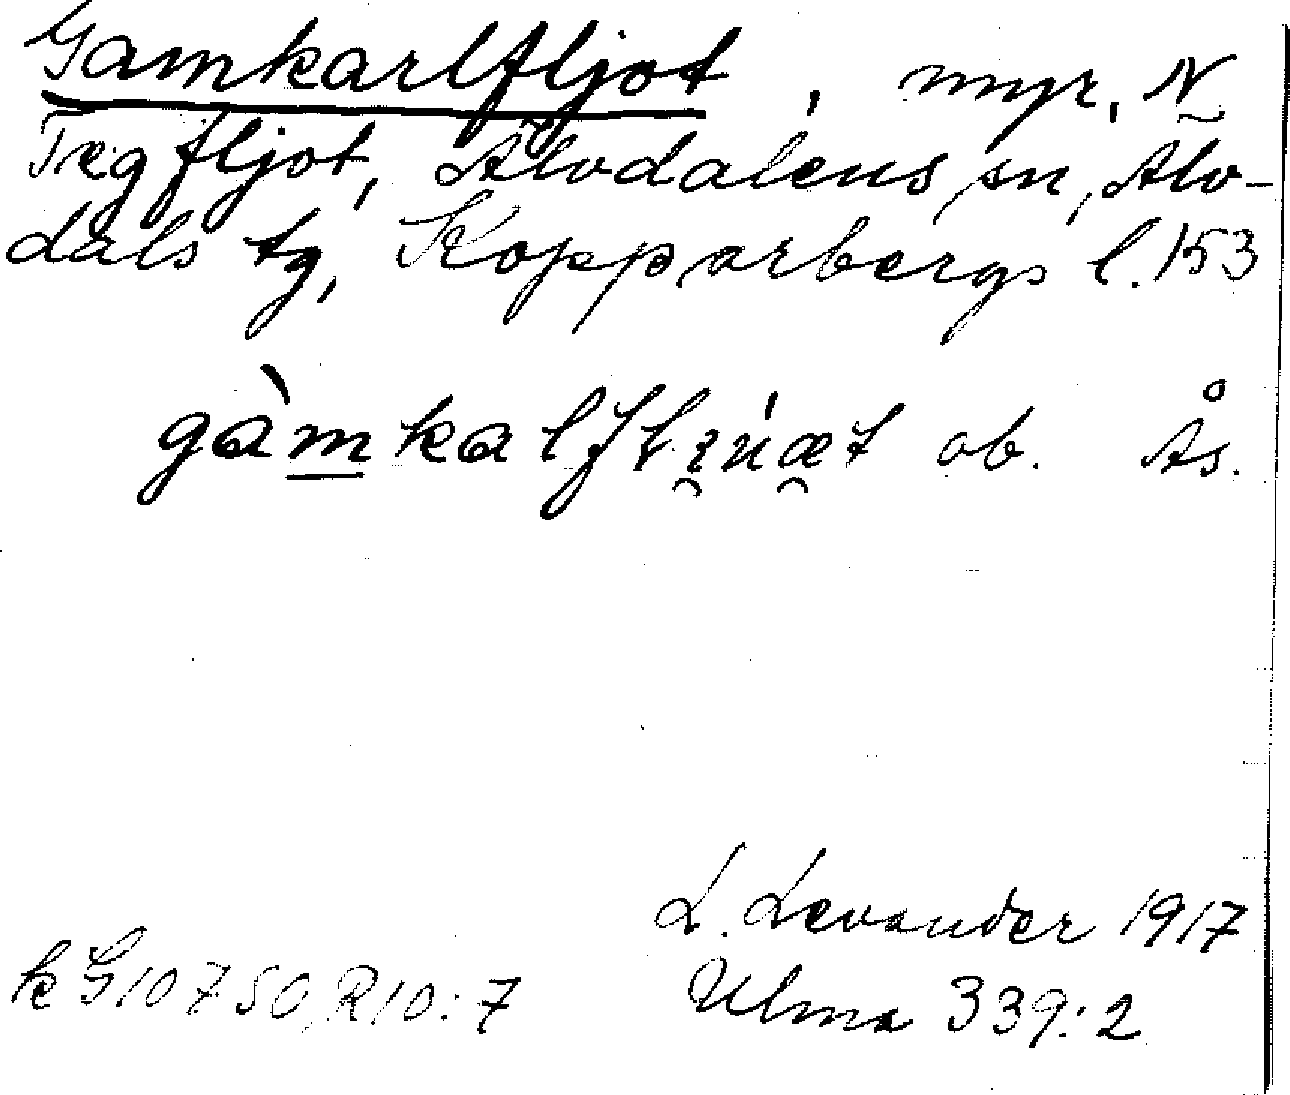 Gamkarlfljot, myr, N
Tegfljot, Älvdalens sn, Älv-
dals tg, Kopparbergs l. 153
ob. Ås.
L. Levander 1917
k G 10 750, R 10:7 Ulma 339:2